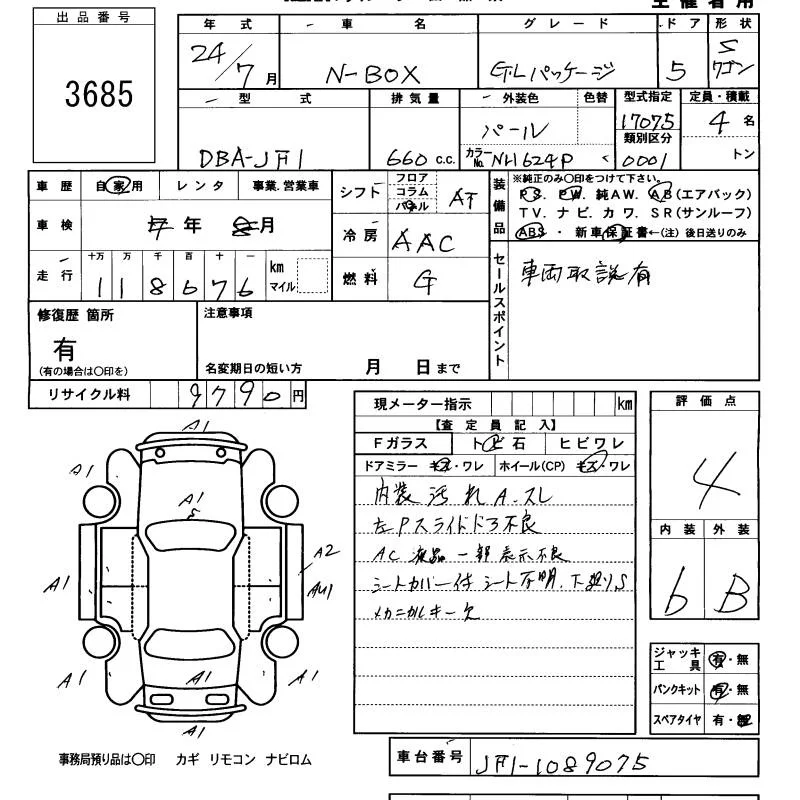 出品番号
3685
年式 車名 グレード ドア 形状
24/7月 N-BOX G・Lパッケージ 5 5ワゴン
型式 排気量 外装色 色替 型式指定 定員・積載
DBA-JF1 660 c.c. パール 17075 4名
カラーNo. NH624P 類別区分 0001 トン
車歴 自家用 レンタ 事業.営業車
シフト フロア コラム パネル AT
装備品 ※純正のみ〇印をつけて下さい。
PS. PW. 純AW. AB(エアバック)
TV. ナビ. カワ. SR(サンルーフ)
ABS・新車保証書←(注) 後日送りのみ
車検 年 月
冷房 AAC
走行 十万 万 千 百 十 一
118676 km マイル
燃料 G
セールスポイント 車両取説有
修復歴 箇所 注意事項
有
(有の場合は〇印を) 名変期日の短い方 月 日まで
リサイクル料 9790円
現メーター指示 km
評価点
4
【査定員記入】
Fガラス トビ石 ヒビワレ
ドアミラー キズ・ワレ ホイール(CP) キズ・ワレ
内装汚れ A.スレ
左Pスライドドア不良
AC 液晶一部表示不良
シートカバー付 シート不明.下廻りS
メカニカルキー欠
内装 外装
6 B
A1
A1 A1
A1
S
A2
A1 AU1
A1 A1 A1
A1
ジャッキ工具 有・無
パンクキット 有・無
スペアタイヤ 有・無
事務局預り品は〇印 カギ リモコン ナビロム
車台番号 JF1-1089075